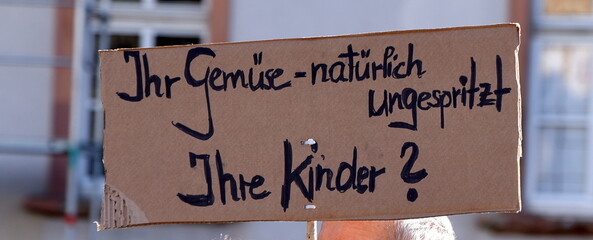 Ihr Gemüse - natürlich
ungespritzt
Ihre Kinder?